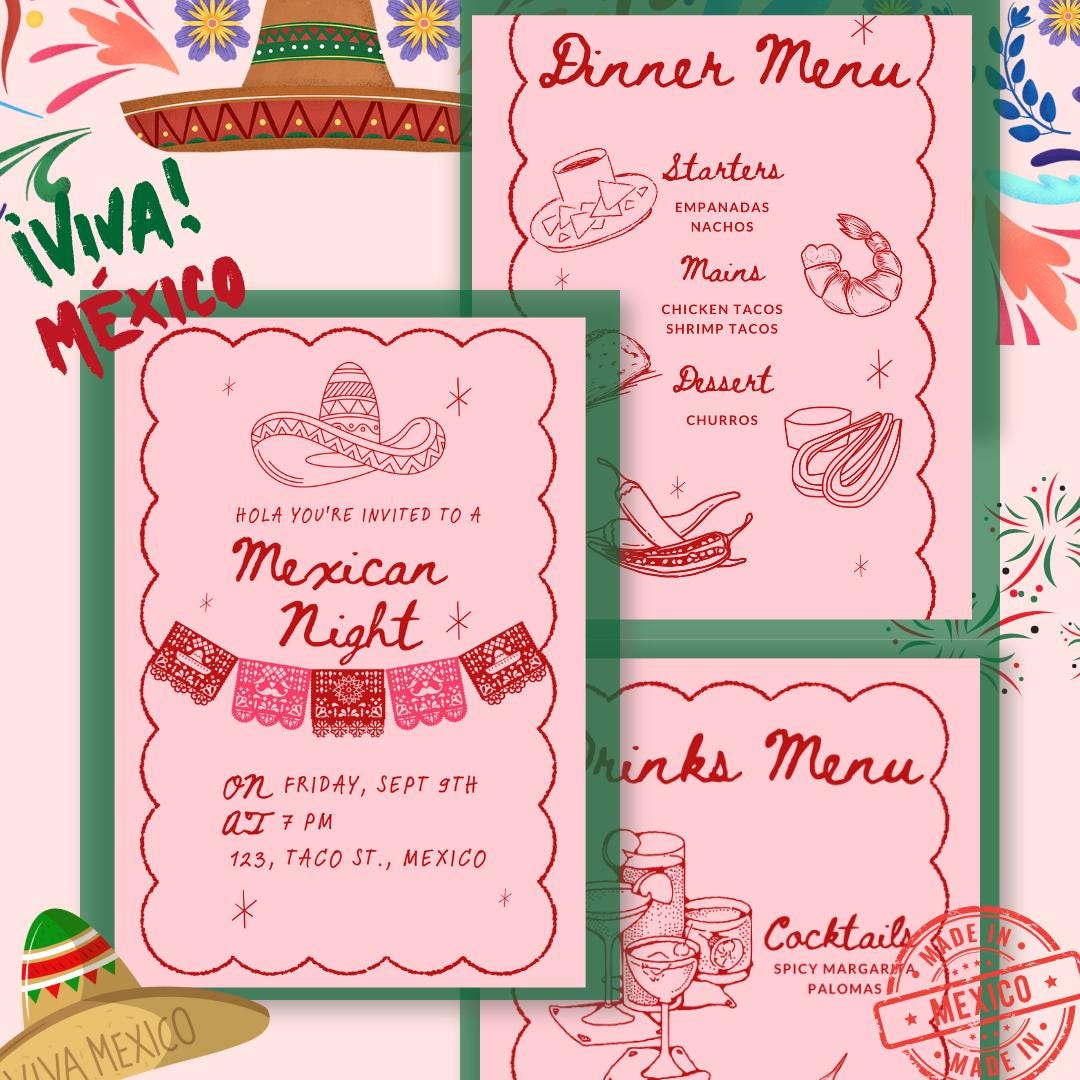 ¡VIVA!
MÉXICO
Dinner Menu
Starters
EMPANADAS
NACHOS
Mains
CHICKEN TACOS
SHRIMP TACOS
Dessert
CHURROS
HOLA YOU'RE INVITED TO A
Mexican
Night
ON FRIDAY, SEPT 9TH
AT 7 PM
123, TACO ST., MEXICO
Drinks Menu
Cocktails
SPICY MARGARITA
PALOMAS
VIVA MEXICO
MADE IN
MEXICO
MADE IN